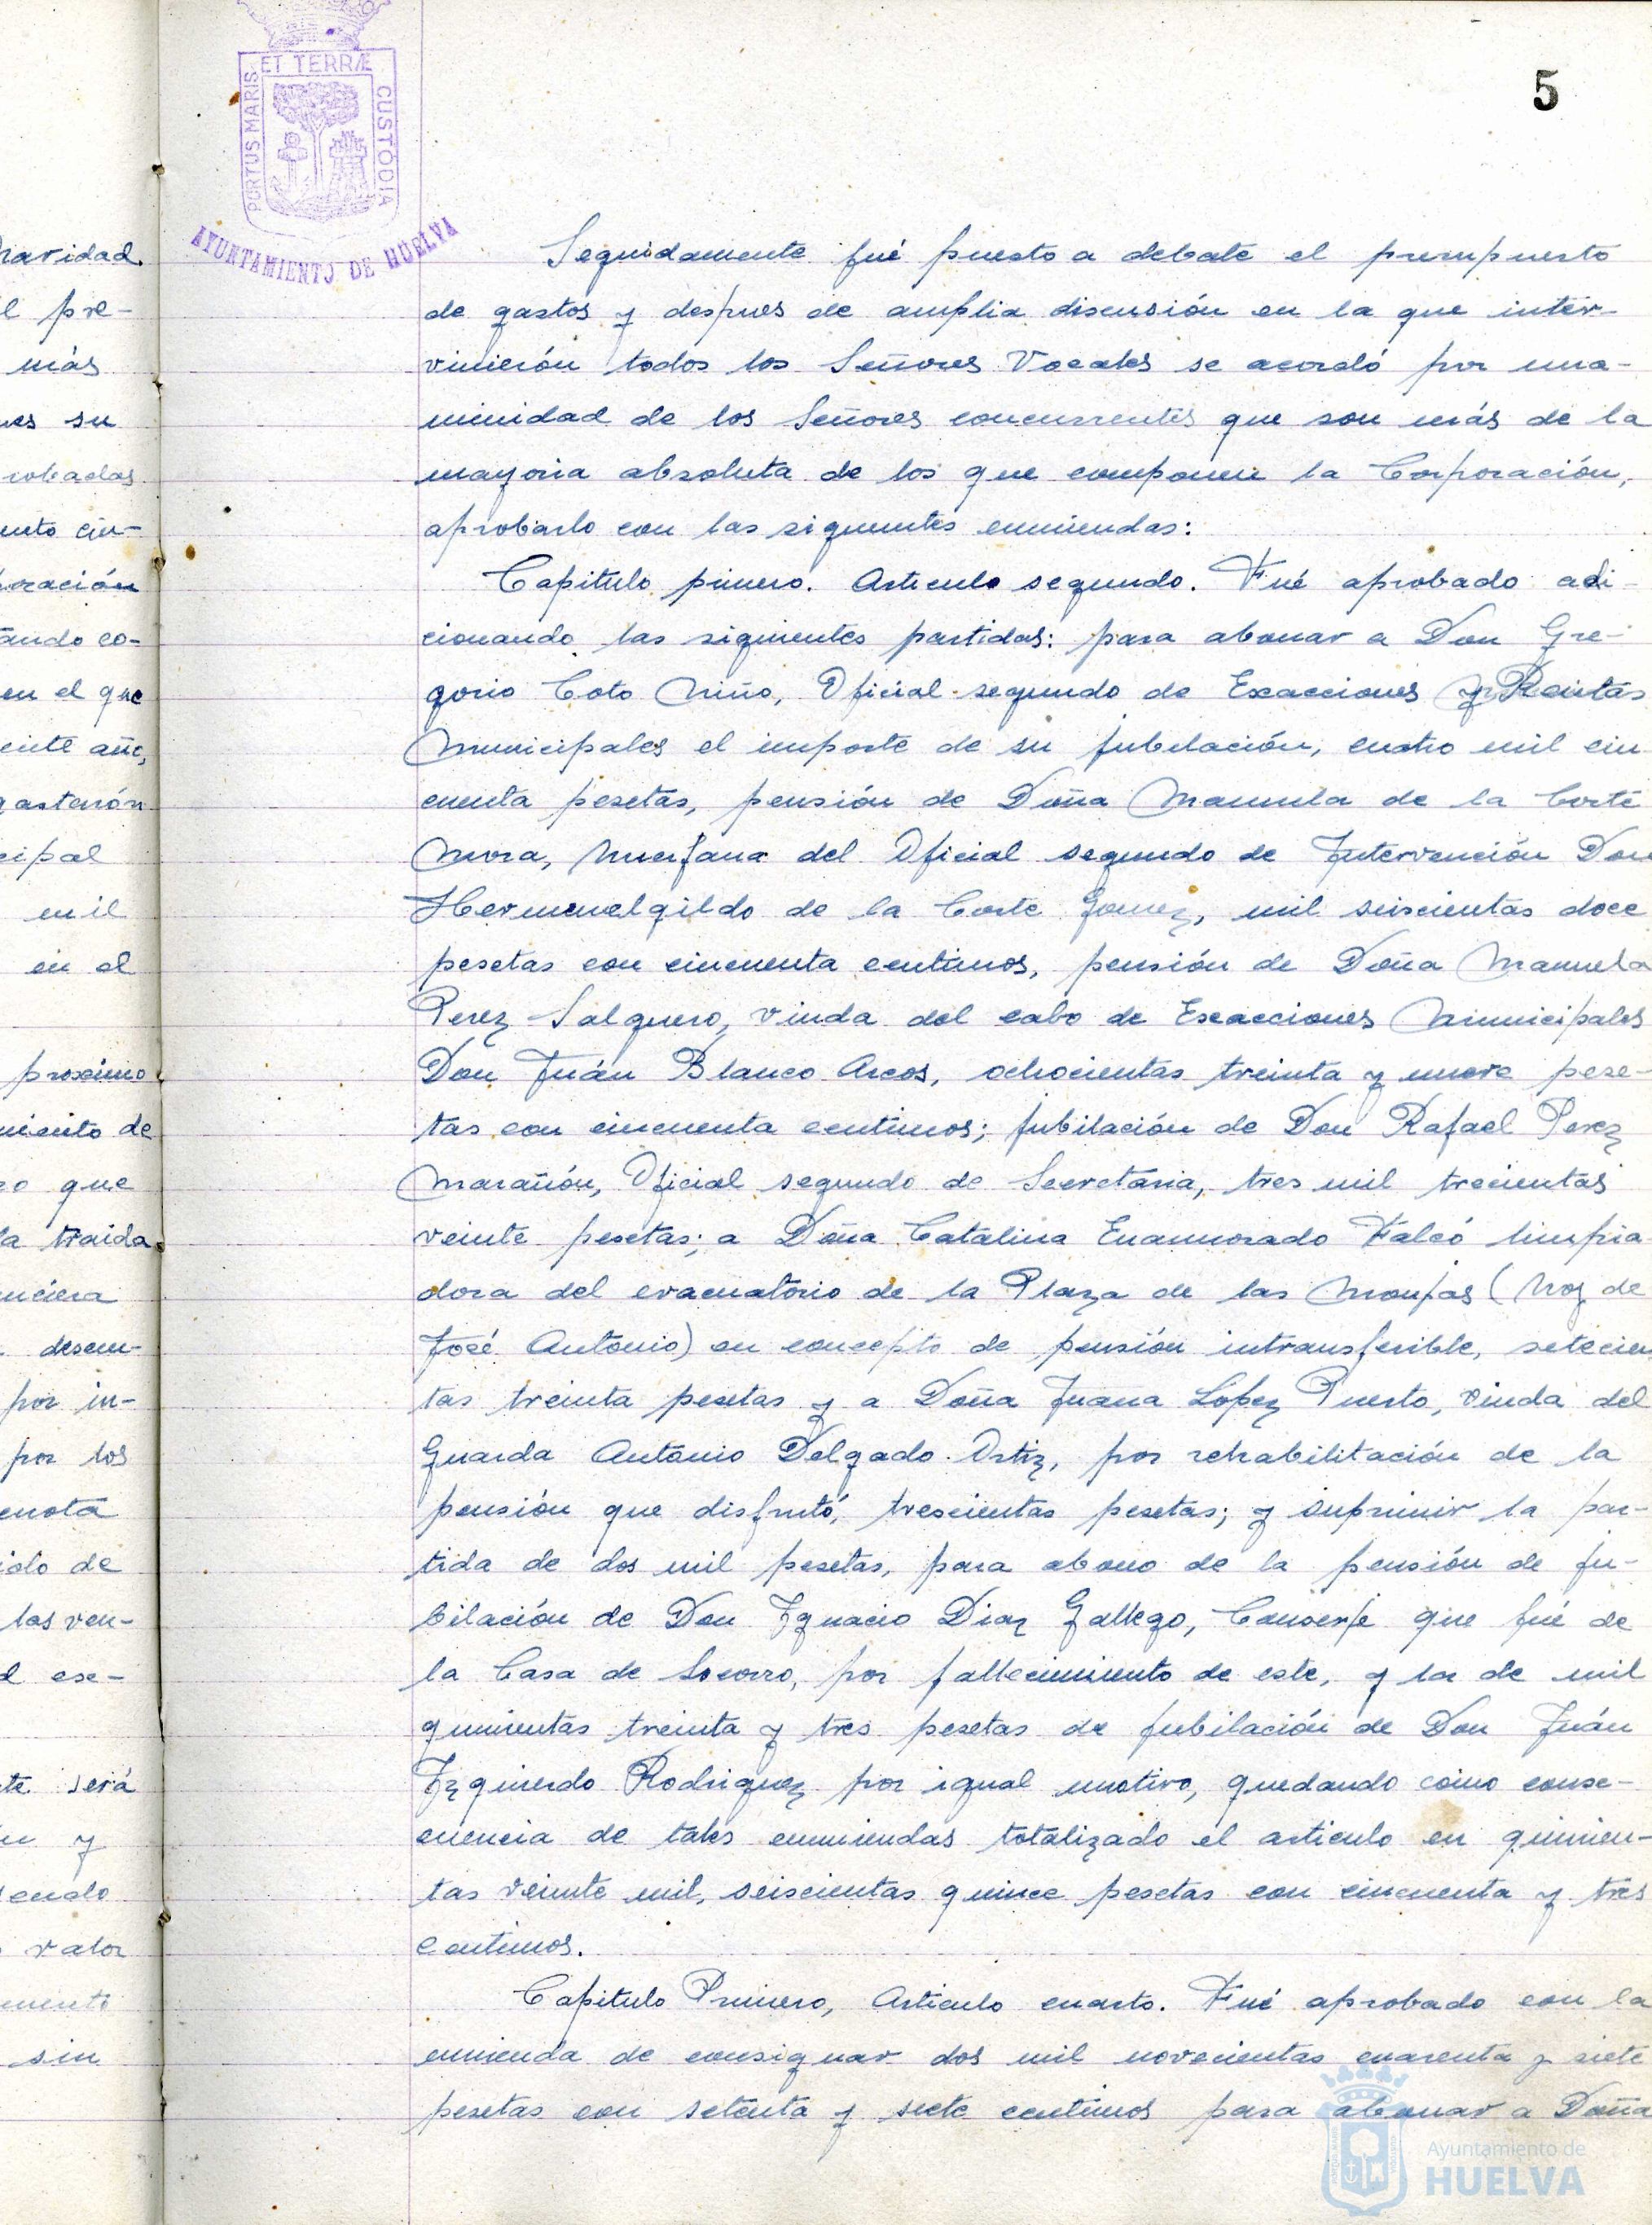 ET TERRÆ
PORTUS MARIS
CUSTODIA
AYUNTAMIENTO DE HUELVA
5
Seguidamente fué puesto a debate el presupuesto
de gastos y despues de amplia discusión en la que inter-
vinierón todos los Señores Vocales se acordó por una-
nimidad de los Señores concurrentes que son más de la
mayoria absoluta de los que componen la Corporación,
aprobarlo con las siguientes enmiendas:
Capitulo primero. Articulo segundo. Fué aprobado adi-
cionando las siguientes partidas: para abonar a Don Gre-
gorio Coto Niño, Oficial segundo de Exacciones y Rentas
Municipales el importe de su jubilación, cuatro mil cin-
cuenta pesetas, pensión de Doña Manuela de la Corte
Mora, huerfana del Oficial segundo de Intervención Don
Hermenelgildo de la Corte Gomez, mil seiscientas doce
pesetas con cincuenta centimos, pensión de Doña Manuela
Perez Salguero, viuda del cabo de Exacciones Municipales
Don Juán Blanco Arcos, ochocientas treinta y nueve pese-
tas con cincuenta centimos; jubilación de Don Rafael Perez
Marañón, Oficial segundo de Secretaria, tres mil trecientas
veinte pesetas; a Doña Catalina Enamorado Falcó limpia-
dora del evacuatorio de la Plaza de las Monjas (hoy de
José Antonio) en concepto de pensión intransferible, setecien
tas treinta pesetas y a Doña Juana Lopez Puerto, viuda del
Guarda Antonio Delgado Ortiz, por rehabilitación de la
pensión que disfrutó, trescientas pesetas; y suprimir la par-
tida de dos mil pesetas, para abono de la pensión de ju-
bilación de Don Ignacio Diaz Gallego, Conserje que fué de
la Casa de Socorro, por fallecimiento de este, y la de mil
quinientas treinta y tres pesetas de jubilación de Don Juán
Izquierdo Rodriguez por igual motivo, quedando como conse-
cuencia de tales enmiendas totalizado el articulo en quinien-
tas veinte mil, seiscientas quince pesetas con cincuenta y tres
centimos.
Capitulo Primero, Articulo cuarto. Fué aprobado con la
enmienda de consignar dos mil novecientas cuarenta y siete
pesetas con setenta y siete centimos para abonar a Doña
Ayuntamiento de
HUELVA
l pre-
más
su
en el que
mil
en el
proximo
que
la traida
por in-
por los
las ven-
será
y
valor
sin